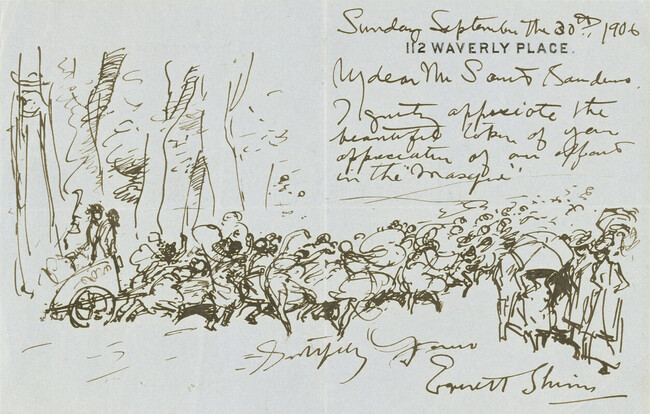 Sunday September the 30th 1906
112 WAVERLY PLACE.
My dear Mr Saint Gaudens.
I greatly appreciate the
beautiful token of your
appreciation of our effort
in the "Masque"
Faithfully Yours
Everett Shinn